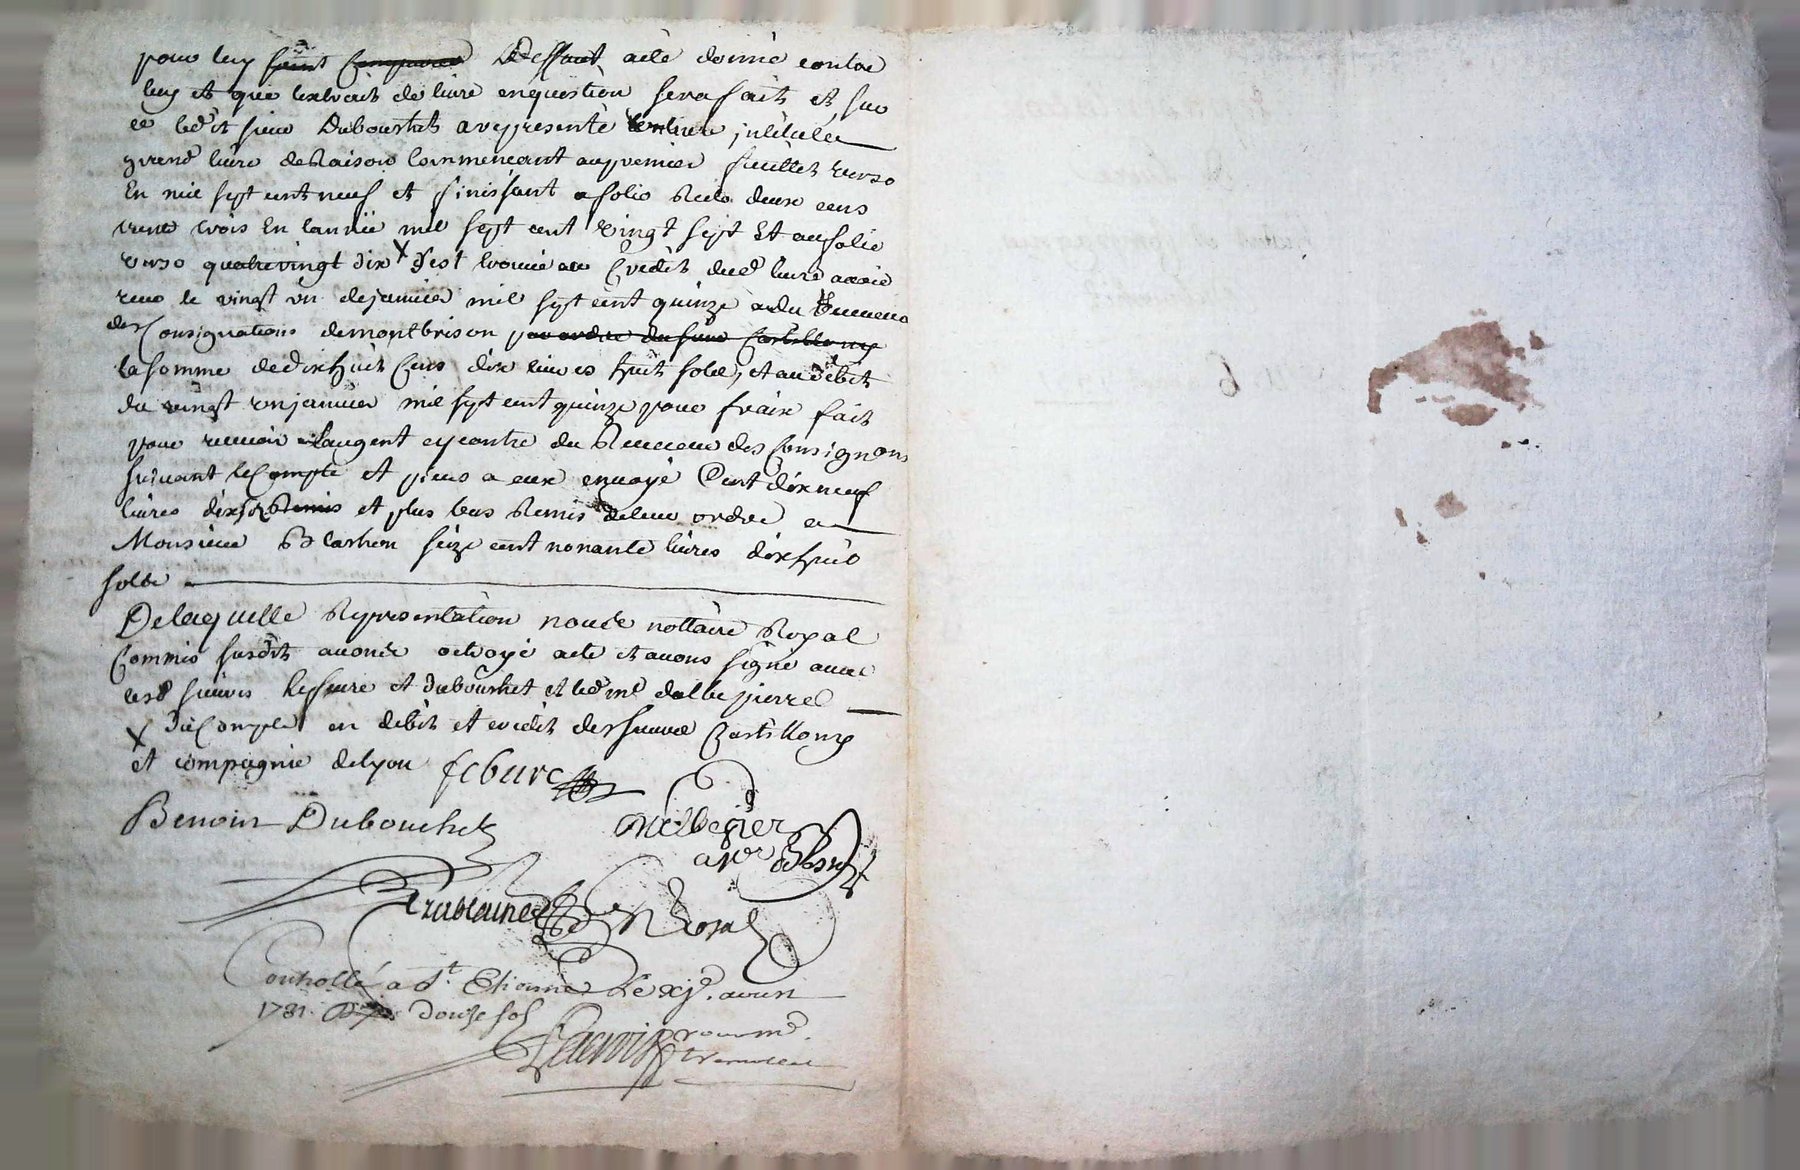 pour luy saint Comparer Deffaut acte donné contre
luy et que lextrait de livre enquestion sera fait et sur
ce led^t sieur Dubouchet a represente un livre jntitulée
grand livre deRaison Commencant aupremier feuillet verso
En mil sept cent neuf et finissant a folio Recto deux cens
trente trois En lannée mil sept cent vingt sept Et au folio
verso quatrevingt dix x s'est trouvé au Credit dud livre avoir
receu le vingt un dejanvier mil sept cent quinze du Receveur
des Consignations demontbrison par ordre du sieur Castillony
la somme dedixhuit Cens dix livres huit sols, et au débit
du vingt unjanvier mil sept cent quinze pour fraix fait
pour recevoir Largent cycontre du Receveur des Consignons
suivant leCompte et pieces a eux envoyé Cent dixneuf
livres dix sols et plus bas Remis de leur ordre a
Monsieur Blachon seize cent nonante livres dixhuit
sols
Delaquelle Representation nous nottaire Royal
Commis susdit avons octroyé acte et avons signé avec
lesd sieurs lefeure et dubouchet et led m^e dallespierre
x du Compte en debit et credit des sieurs Castillony
et compagnie delyon febure
Benoit Dubouchet
Controllé a S^t. Etienne Le xj^e. avril
1731. douze sols
Lacroix pour m^r.